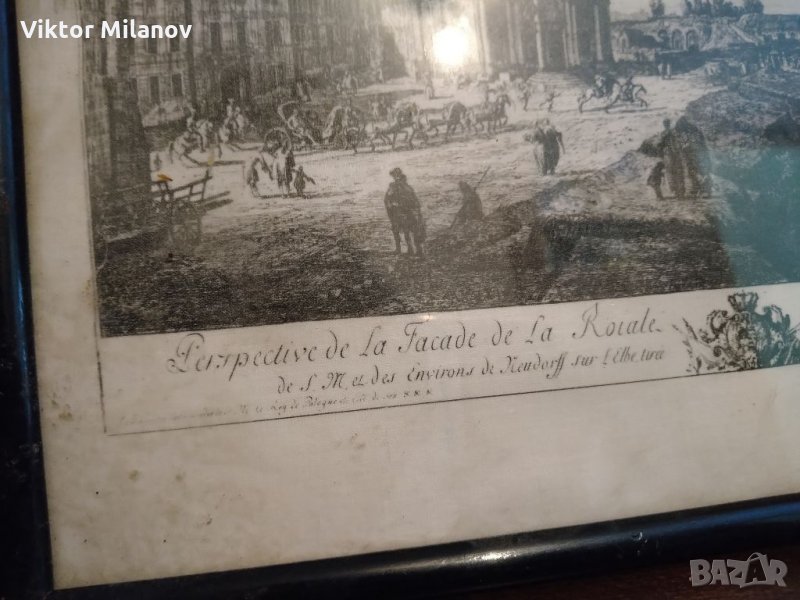 Viktor Milanov
Perspective de La Facade de La Roiale
de S. M. et des Environs de Neudorff sur l'Elbe, tirée
Roy de Pologne
BAZAR